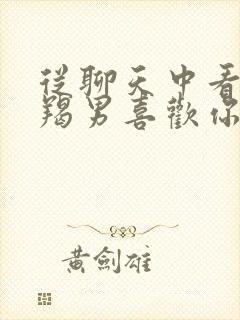 從聊天中看
羯男喜歡你
黃劍雄